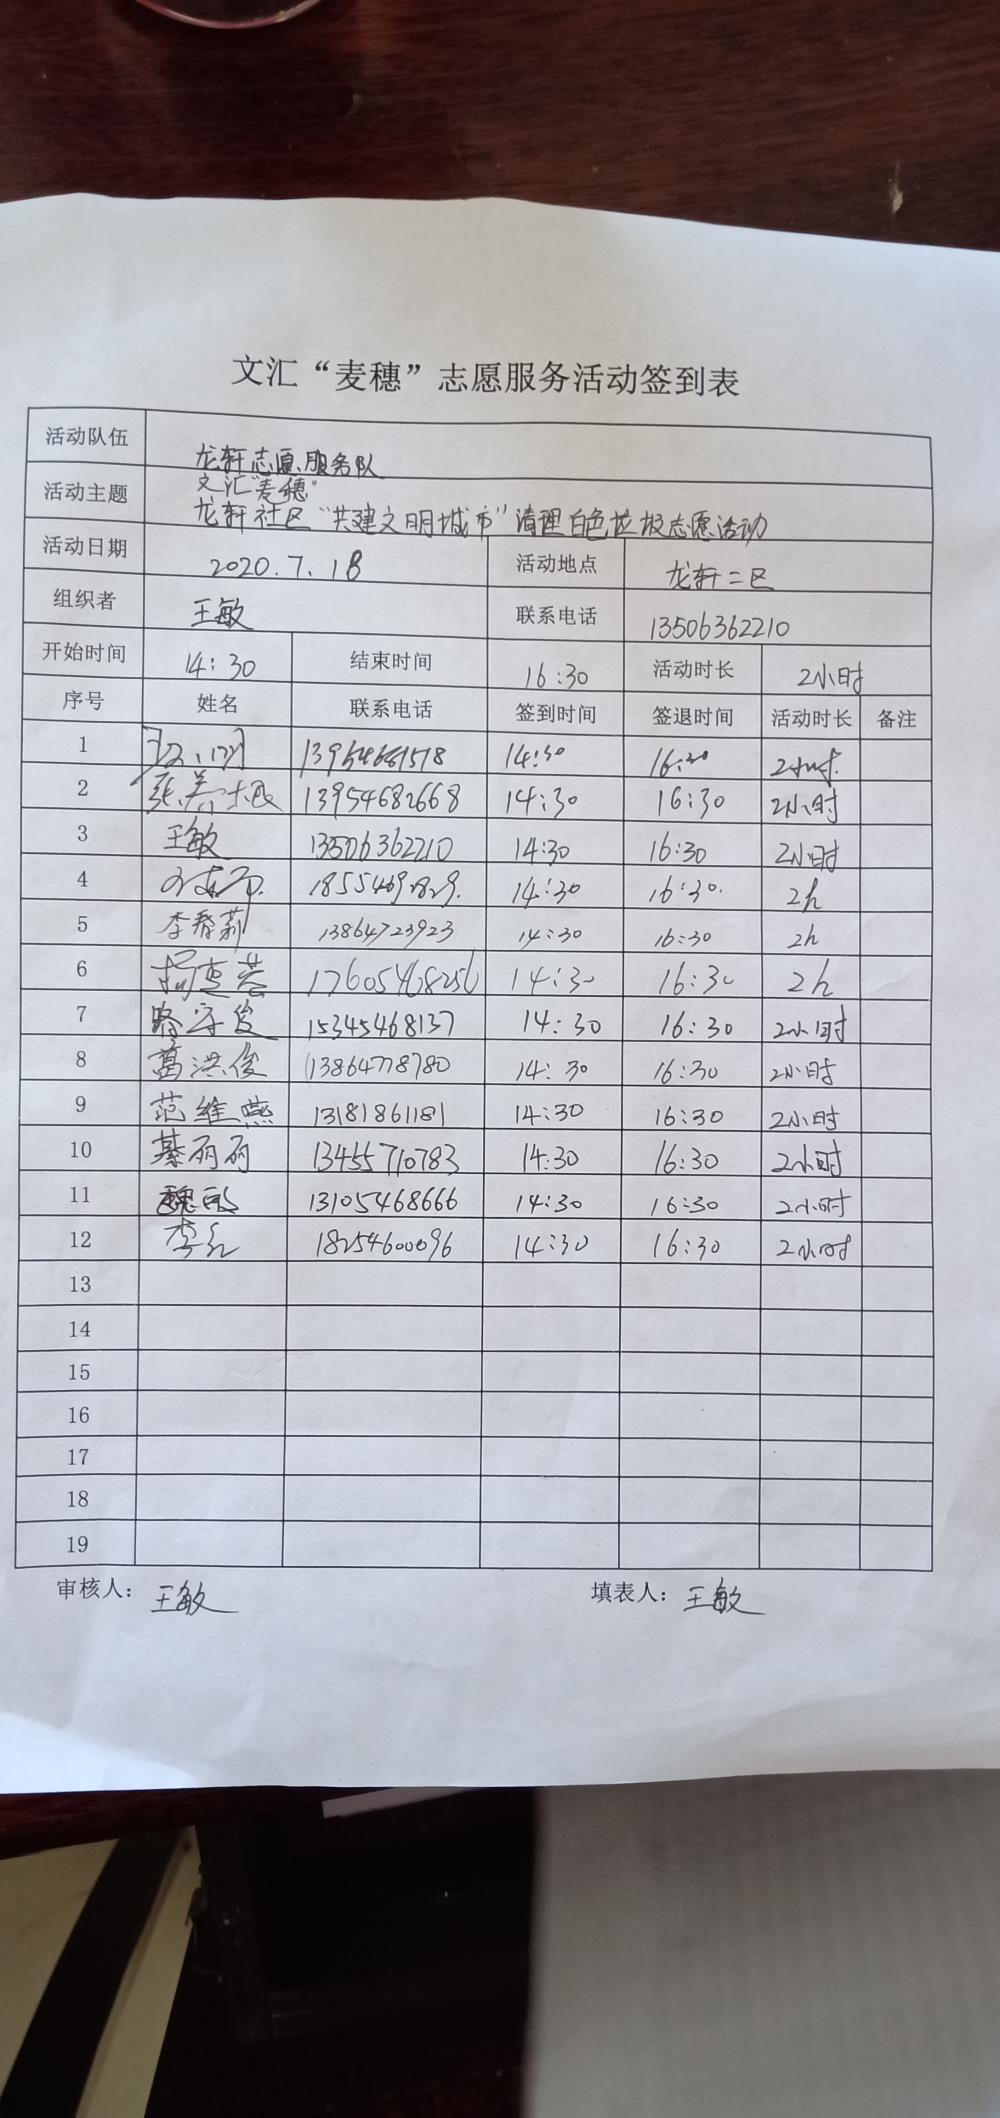 文汇“麦穗”志愿服务活动签到表
活动队伍 龙轩志愿服务队
活动主题 文汇“麦穗”
龙轩社区“共建文明城市”清理白色垃圾志愿活动
活动日期 2020.7.18 活动地点 龙轩二区
组织者 王敏 联系电话 13506362210
开始时间 14:30 结束时间 16:30 活动时长 2小时
序号 姓名 联系电话 签到时间 签退时间 活动时长 备注
1 14:30 16:30 2小时
2 13954682668 14:30 16:30 2小时
3 王敏 13506362210 14:30 16:30 2小时
4 14:30 16:30. 2h
5 李春莉 13864723923 14:30 16:30 2h
6 17605468256 14:30 16:30 2h
7 路守俊 15345468137 14:30 16:30 2小时
8 葛洪俊 13864778780 14:30 16:30 2小时
9 范维燕 13181861181 14:30 16:30 2小时
10 綦丽丽 13455710783 14:30 16:30 2小时
11 13105468666 14:30 16:30 2小时
12 李红 18254600096 14:30 16:30 2小时
13
14
15
16
17
18
19
审核人：王敏 填表人：王敏